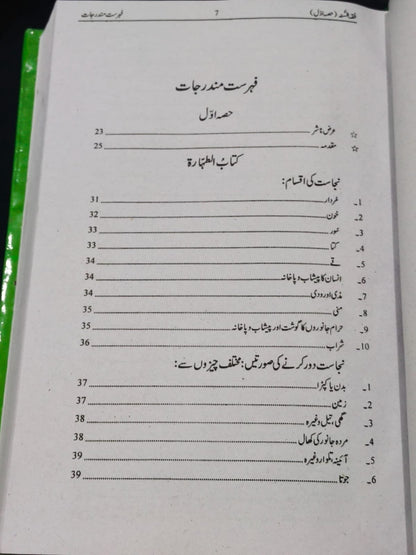 فقہ السنہ (حصہ اول) 7 فہرست مندرجات
فہرست مندرجات
حصہ اوّل
☆ عرض ناشر 23
☆ مقدمہ 25
کتابُ الطہارۃ
نجاست کی اقسام:
1۔ مردار 31
2۔ خون 32
3۔ خور 33
4۔ کتا 33
5۔ قے 34
6۔ انسان کا پیشاب و پاخانہ 34
7۔ مذی اور ودی 34
8۔ منی 35
9۔ حرام جانوروں کا گوشت اور پیشاب و پاخانہ 35
10۔ شراب 36
نجاست دور کرنے کی صورتیں: مختلف چیزوں سے:
1۔ بدن یا کپڑا 37
2۔ زمین 37
3۔ گھی، تیل وغیرہ 38
4۔ مردہ جانور کی کھال 38
5۔ آئینہ، تلوار وغیرہ 39
6۔ جوتا 39